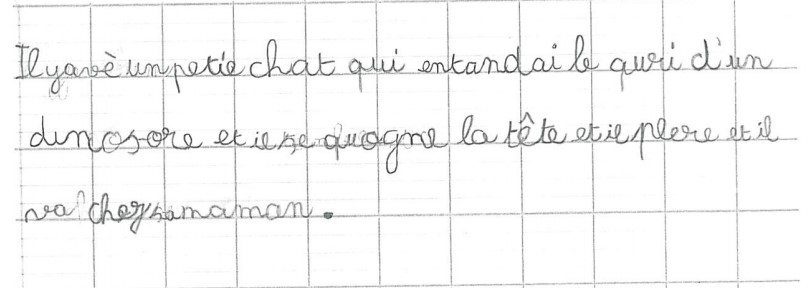 Il yavè un petie chat qui entandai le quri d'un
dinosore et ie se quogne la tête et ie plere et il
va chez sa maman.